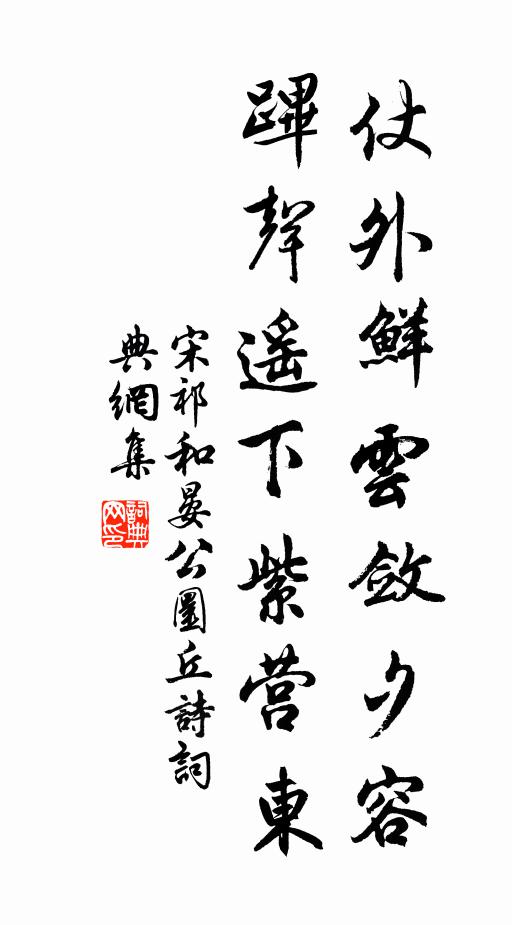 仗外鮮雲斂夕容
蹕聲遥下紫营東
宋祁和晏公圜丘詩詞
典網集
詞典网印